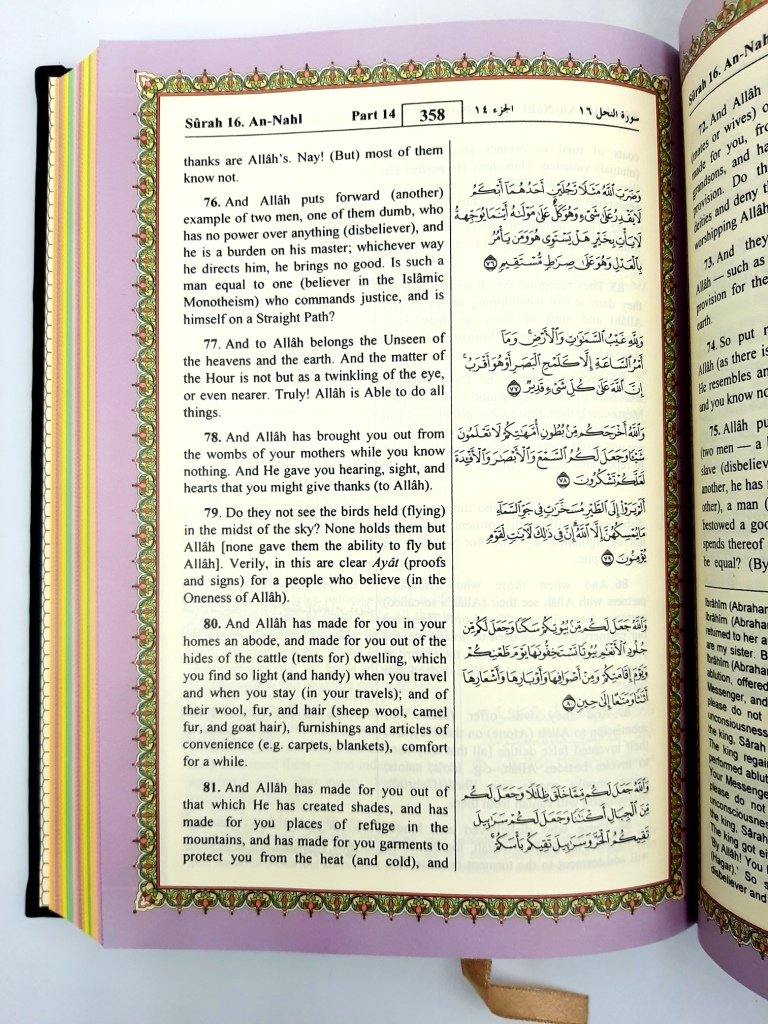 Sûrah 16. An-Nahl
Part 14
358
الجزء ١٤
سورة النحل ١٦
thanks are Allâh's. Nay! (But) most of them
know not.
76. And Allâh puts forward (another)
example of two men, one of them dumb, who
has no power over anything (disbeliever), and
he is a burden on his master; whichever way
he directs him, he brings no good. Is such a
man equal to one (believer in the Islâmic
Monotheism) who commands justice, and is
himself on a Straight Path?
77. And to Allâh belongs the Unseen of
the heavens and the earth. And the matter of
the Hour is not but as a twinkling of the eye,
or even nearer. Truly! Allâh is Able to do all
things.
78. And Allâh has brought you out from
the wombs of your mothers while you know
nothing. And He gave you hearing, sight, and
hearts that you might give thanks (to Allâh).
79. Do they not see the birds held (flying)
in the midst of the sky? None holds them but
Allâh [none gave them the ability to fly but
Allâh]. Verily, in this are clear Ayât (proofs
and signs) for a people who believe (in the
Oneness of Allâh).
80. And Allâh has made for you in your
homes an abode, and made for you out of the
hides of the cattle (tents for) dwelling, which
you find so light (and handy) when you travel
and when you stay (in your travels); and of
their wool, fur, and hair (sheep wool, camel
fur, and goat hair), furnishings and articles of
convenience (e.g. carpets, blankets), comfort
for a while.
81. And Allâh has made for you out of
that which He has created shades, and has
made for you places of refuge in the
mountains, and has made for you garments to
protect you from the heat (and cold), and
وَضَرَبَ ٱللَّهُ مَثَلًا رَّجُلَيْنِ أَحَدُهُمَآ أَبْكَمُ
لَا يَقْدِرُ عَلَىٰ شَىْءٍ وَهُوَ كَلٌّ عَلَىٰ مَوْلَىٰهُ أَيْنَمَا يُوَجِّههُّ
لَا يَأْتِ بِخَيْرٍ هَلْ يَسْتَوِى هُوَ وَمَن يَأْمُرُ
بِٱلْعَدْلِ وَهُوَ عَلَىٰ صِرَٰطٍ مُّسْتَقِيمٍ ٧٦
وَلِلَّهِ غَيْبُ ٱلسَّمَٰوَٰتِ وَٱلْأَرْضِ وَمَآ
أَمْرُ ٱلسَّاعَةِ إِلَّا كَلَمْحِ ٱلْبَصَرِ أَوْ هُوَ أَقْرَبُ
إِنَّ ٱللَّهَ عَلَىٰ كُلِّ شَىْءٍ قَدِيرٌ ٧٧
وَٱللَّهُ أَخْرَجَكُم مِّنۢ بُطُونِ أُمَّهَٰتِكُمْ لَا تَعْلَمُونَ
شَيْـًٔا وَجَعَلَ لَكُمُ ٱلسَّمْعَ وَٱلْأَبْصَٰرَ وَٱلْأَفْـِٔدَةَ
لَعَلَّكُمْ تَشْكُرُونَ ٧٨
أَلَمْ يَرَوْا۟ إِلَى ٱلطَّيْرِ مُسَخَّرَٰتٍ فِى جَوِّ ٱلسَّمَآءِ
مَا يُمْسِكُهُنَّ إِلَّا ٱللَّهُ إِنَّ فِى ذَٰلِكَ لَءَايَٰتٍ لِّقَوْمٍ
يُؤْمِنُونَ ٧٩
وَٱللَّهُ جَعَلَ لَكُم مِّنۢ بُيُوتِكُمْ سَكَنًا وَجَعَلَ لَكُم مِّن
جُلُودِ ٱلْأَنْعَٰمِ بُيُوتًا تَسْتَخِفُّونَهَا يَوْمَ ظَعْنِكُمْ
وَيَوْمَ إِقَامَتِكُمْ وَمِنْ أَصْوَافِهَا وَأَوْبَارِهَا وَأَشْعَارِهَآ
أَثَٰثًا وَمَتَٰعًا إِلَىٰ حِينٍ ٨٠
وَٱللَّهُ جَعَلَ لَكُم مِّمَّا خَلَقَ ظِلَٰلًا وَجَعَلَ لَكُم
مِّنَ ٱلْجِبَالِ أَكْنَٰنًا وَجَعَلَ لَكُمْ سَرَٰبِيلَ
تَقِيكُمُ ٱلْحَرَّ وَسَرَٰبِيلَ تَقِيكُم بَأْسَكُمْ
Sûrah 16. An-Nahl
72. And Allâh
(mates or wives) o
made for you, fro
grandsons, and ha
provision. Do th
deities and deny th
worshipping Allâh
73. And they
Allâh — such as
provision for the
earth.
74. So put n
Allâh (as there is
He resembles an
and you know no
75. Allâh pu
(two men — a
slave (disbeliev
another, he has
other), a man (
bestowed a goo
spends thereof
be equal? (By
Ibrâhîm (Abraham
Ibrâhîm (Abrahar
returned to her a
are my sister. B
Ibrâhîm (Abraha
ablution, offered
Messenger, and
please do not
unconsiousness
the king, Sârah
The king regain
performed ablut
Your Messenge
please do not
unconsciousnes
the king, Sârah
The king got ei
'By Allâh! You
(Hagar).' So s
disbeliever and